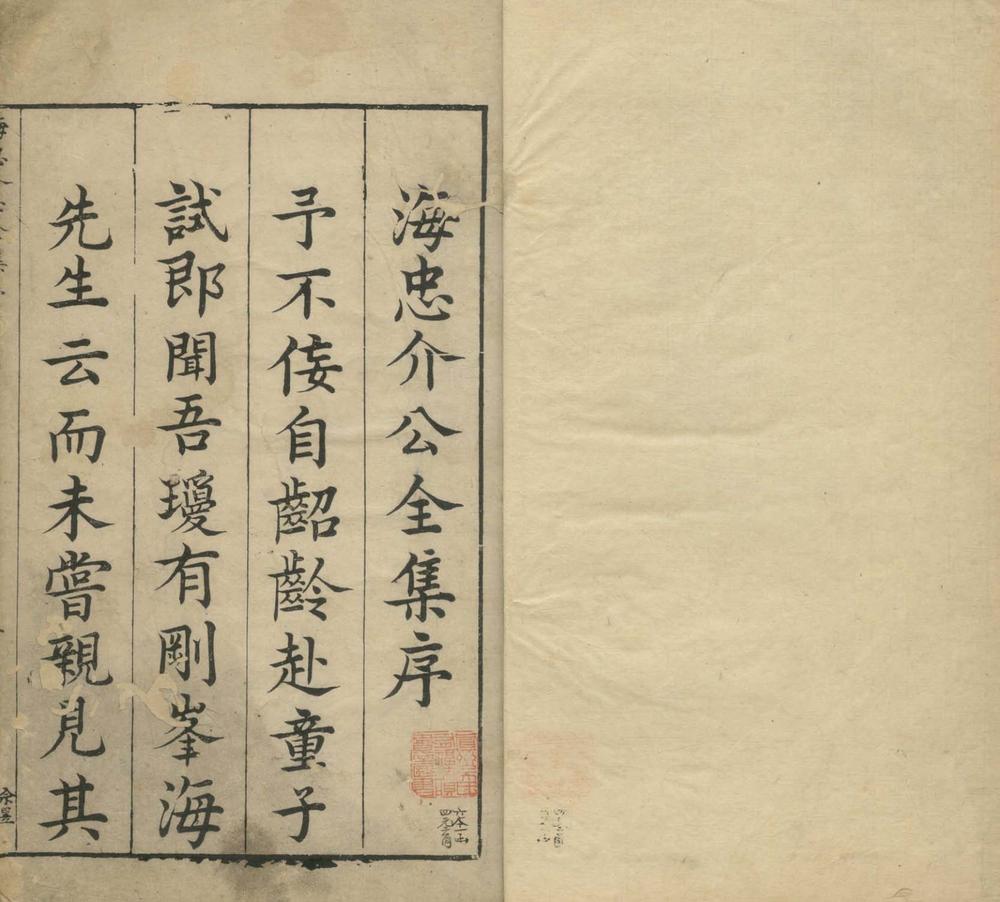 海忠介公全集序
予不佞自齠齡赴童子
試即聞吾瓊有剛峯海
先生云而未嘗親見其
六本一函